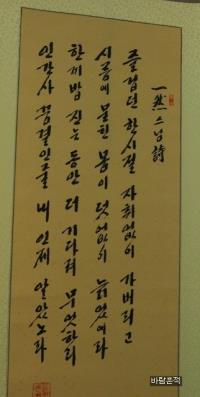 一然스님詩
즐겁던 한시절 자취없이 가버리고
시름에 묻힌 몸이 덧없이 늙었에라
한끼밥 짓는 동안 더 기다려 무엇하리
인간사 꿈결인줄 내 인제 알았노라
바람흔적